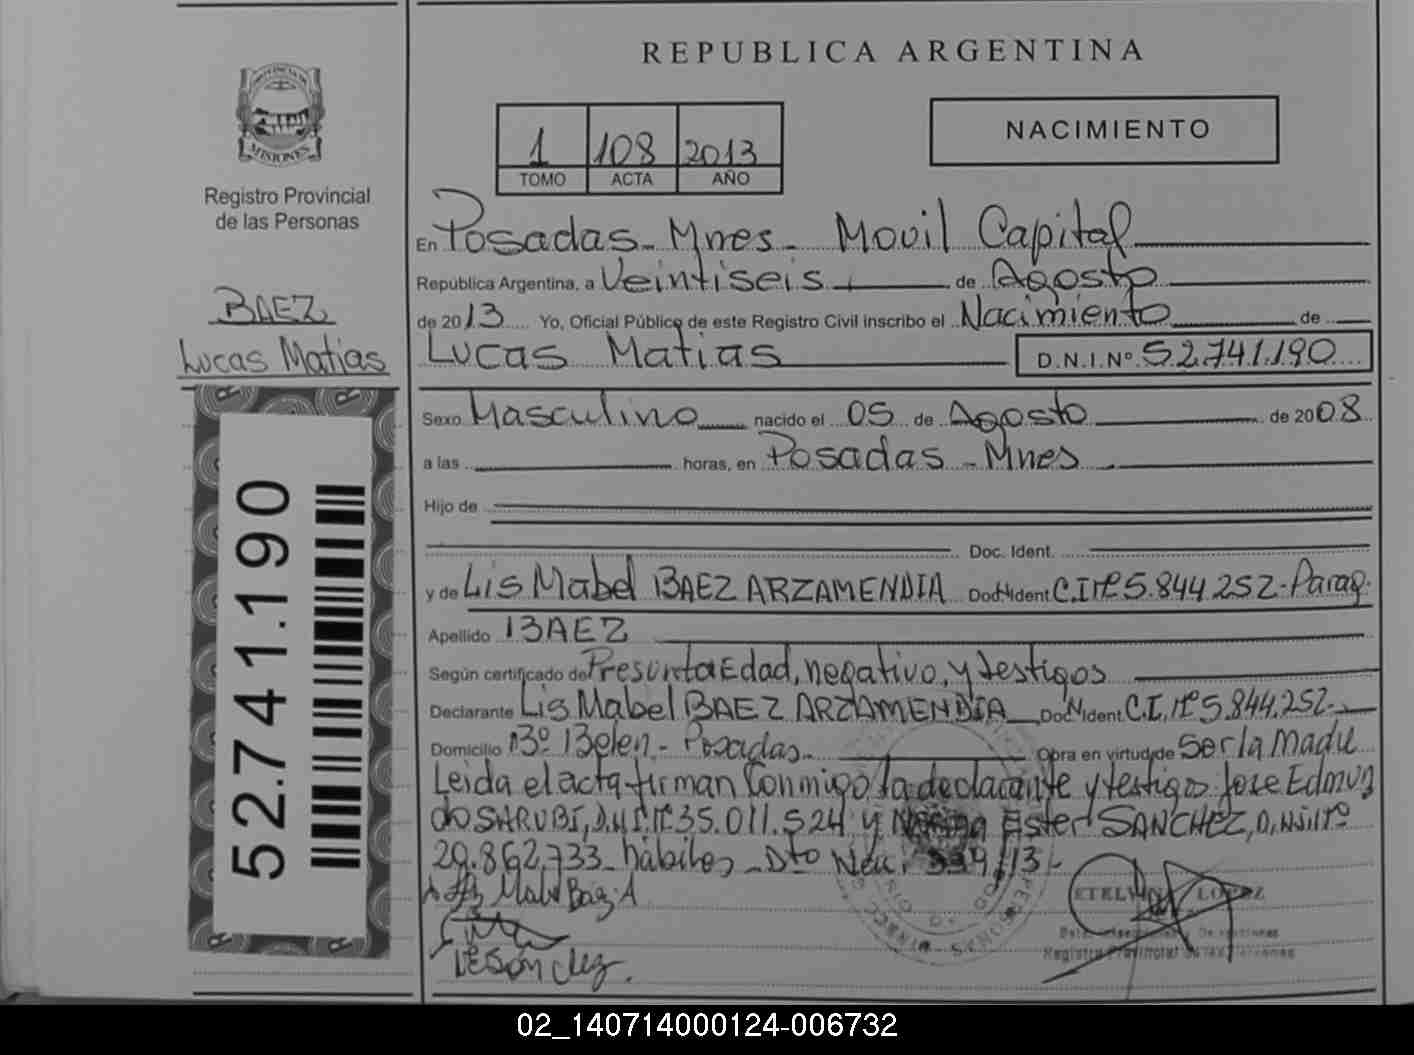 REPUBLICA ARGENTINA
PROVINCIA DE
MISIONES
Registro Provincial
de las Personas
1 108 2013
TOMO ACTA AÑO
NACIMIENTO
BAEZ
Lucas Matias
52.741.190
En Posadas - Mnes - Movil Capital
República Argentina, a Veintiseis de Agosto
de 2013 Yo, Oficial Público de este Registro Civil inscribo el Nacimiento de
Lucas Matias D.N.I.Nº 52.741.190
Sexo Masculino nacido el 05 de Agosto de 2008
a las horas, en Posadas - Mnes
Hijo de
Doc. Ident.
y de Lis Mabel BAEZ ARZAMENDIA Doc. Ident C.I Nº 5.844.252 - Parag.
Apellido BAEZ
Según certificado de Presunta Edad, negativo, y testigos
Declarante Lis Mabel BAEZ ARZAMENDIA Doc. Ident. C.I. Nº 5.844.252
Domicilio Bº Belen - Posadas - Obra en virtud de Ser la Madre
Leida el acta firman Conmigo la declarante y testigos Jose Edmun
do SARUBI, D.N.I. Nº 35.011.524 y Ester SANCHEZ, D.N.I. Nº
29.862.733 - hábiles - Dto 339/13 -
ETELVINA LOPEZ
Registro Provincial de las Personas
02_140714000124-006732